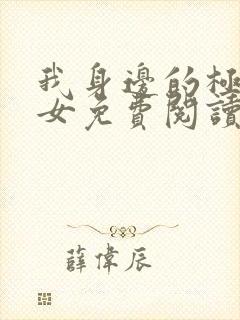 我身邊的極
女免費閱讀
薛偉辰